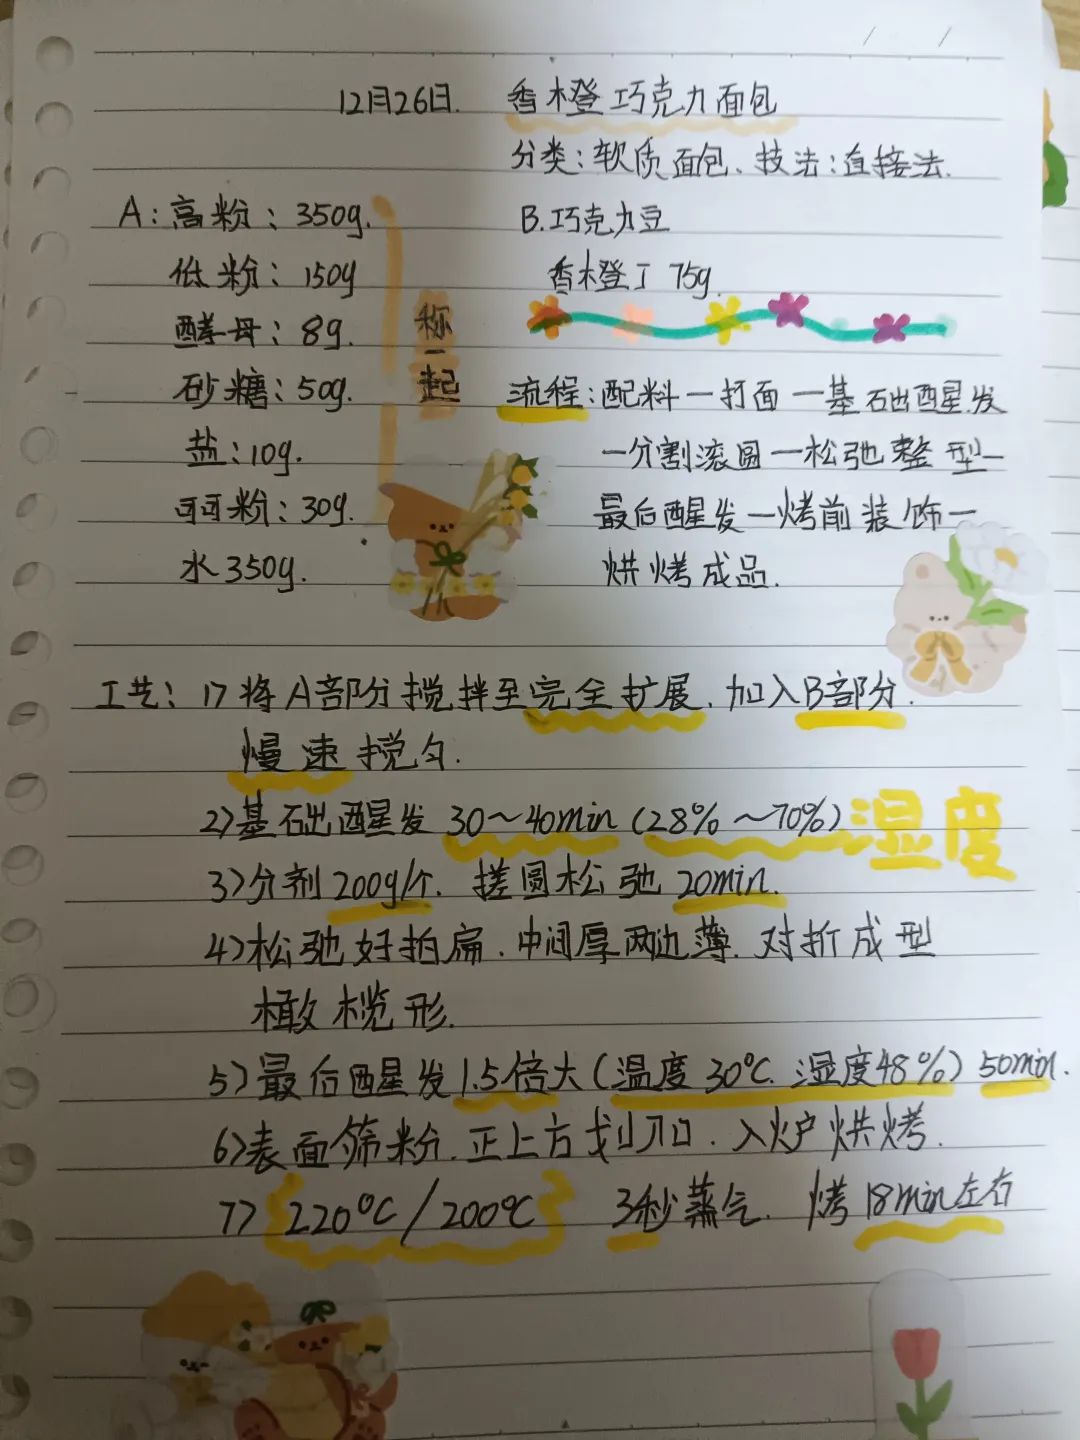 12月26日. 香橙巧克力面包
分类:软质面包、技法:直接法.
A:高粉:350g.
低粉:150g
酵母:8g.
砂糖:50g.
盐:10g.
可可粉:30g.
水350g.
称一起
B.巧克力豆
香橙丁 75g
流程:配料一打面一基础醒发
一分割滚圆一松弛整型一
最后醒发一烤前装饰一
烘烤成品.
工艺:1)将A部分搅拌至完全扩展.加入B部分.
慢速搅匀.
2)基础醒发30~40min(28%~70%)湿度
3)分剂200g/个.搓圆松弛20min.
4)松弛好拍扁.中间厚两边薄.对折成型
橄榄形.
5)最后醒发1.5倍大(温度30℃.湿度48%)50min.
6)表面筛粉.正上方划刀口.入炉烘烤.
7)220℃/200℃ 3秒蒸气. 烤18min左右